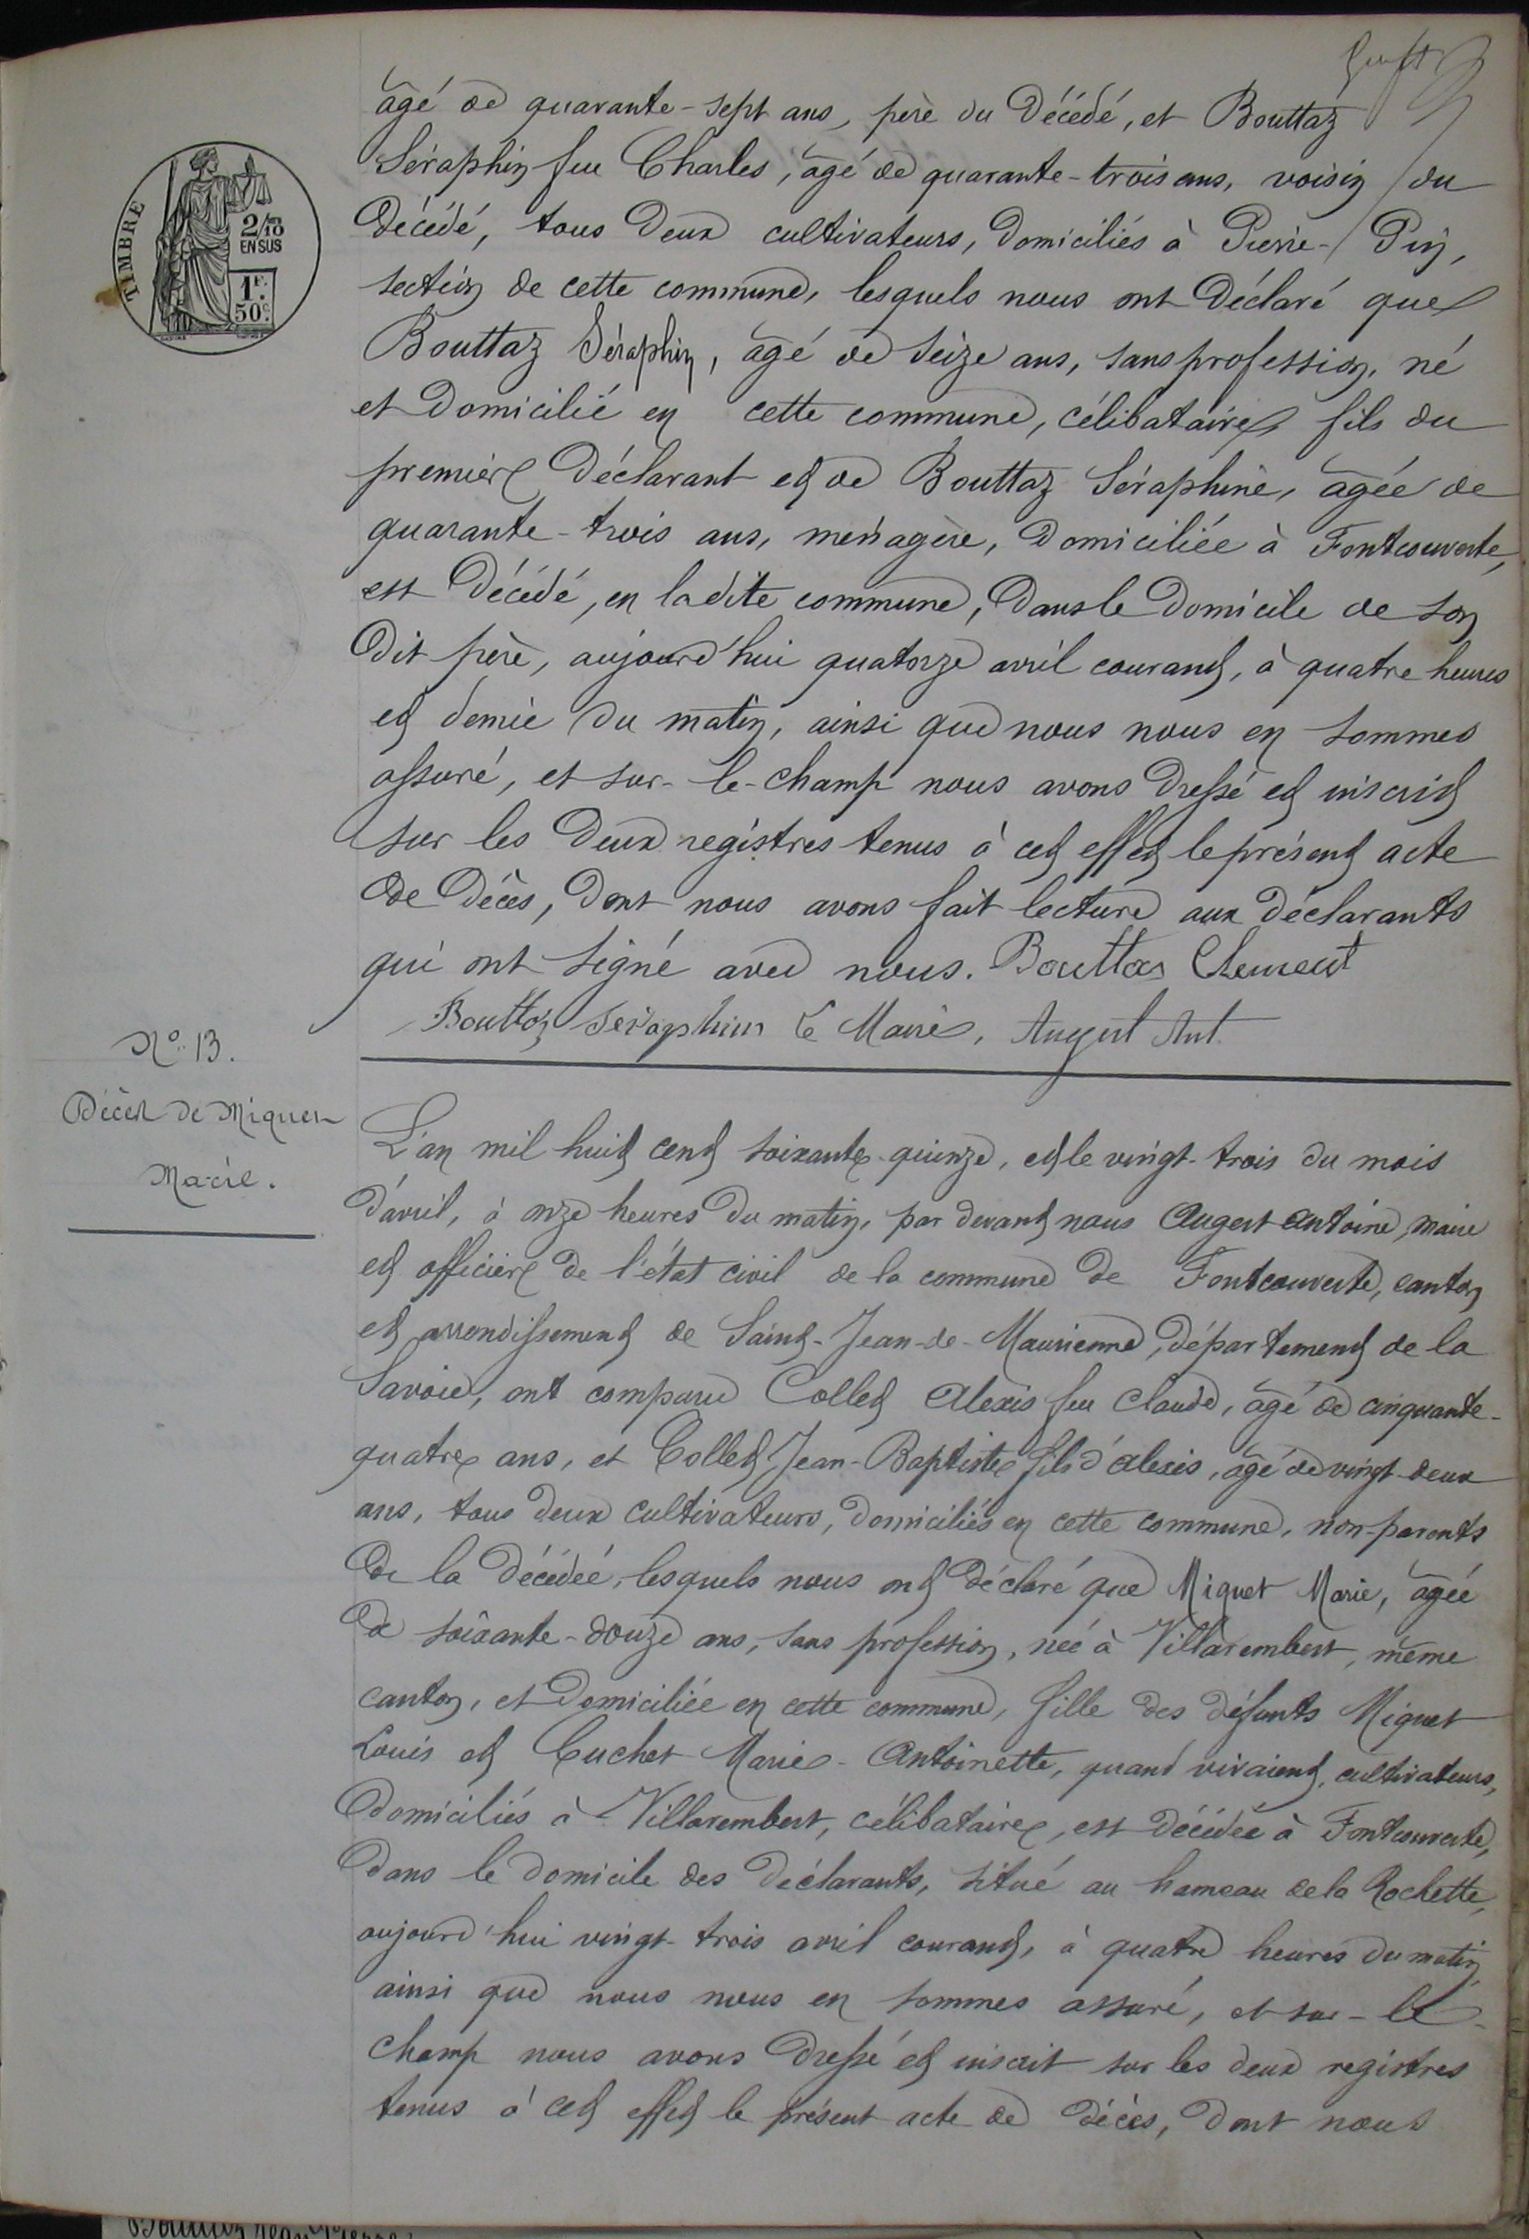 âgé de quarante-sept ans, père du décédé, et Bouttaz
Séraphin feu Charles, âgé de quarante-trois ans, voisin du
décédé, tous deux cultivateurs, domiciliés à Pierre-Pin,
section de cette commune, lesquels nous ont déclaré que
Bouttaz Séraphin, âgé de seize ans, sans profession, né
et domicilié en cette commune, célibataire, fils du
premier déclarant et de Bouttaz Séraphine, âgée de
quarante-trois ans, ménagère, domiciliée à Fontcouverte,
est décédé, en ladite commune, dans le domicile de son
dit père, aujourd'hui quatorze avril courant, à quatre heures
et demie du matin, ainsi que nous nous en sommes
assuré, et sur-le-champ nous avons dressé et inscrit
sur les deux registres tenus à cet effet le présent acte
de décès, dont nous avons fait lecture aux déclarants
qui ont signé avec nous. Bouttaz Clement
Bouttaz Séraphin Le Maire, Augert Ant
TIMBRE
2/10 EN SUS
1F. 50c.
No. 13.
Décès de Miquet
Marie.
L'an mil huit cent soixante-quinze, et le vingt-trois du mois
d'avril, à onze heures du matin, par devant nous Augert Antoine, maire
et officier de l'état civil de la commune de Fontcouverte, canton
et arrondissement de Saint-Jean-de-Maurienne, département de la
Savoie, ont comparu Collet Alexis feu Claude, âgé de cinquante-
quatre ans, et Collet Jean-Baptiste fils d'Alexis, âgé de vingt-deux
ans, tous deux cultivateurs, domiciliés en cette commune, non-parents
de la décédée, lesquels nous ont déclaré que Miquet Marie, âgée
de soixante-douze ans, sans profession, née à Villarembert, même
canton, et domiciliée en cette commune, fille des défunts Miquet
Louis et Cuchet Marie-Antoinette, quand vivaient, cultivateurs,
domiciliés à Villarembert, célibataire, est décédée à Fontcouverte,
dans le domicile des déclarants, situé au hameau de la Rochette,
aujourd'hui vingt-trois avril courant, à quatre heures du matin,
ainsi que nous nous en sommes assuré, et sur-le-
champ nous avons dressé et inscrit sur les deux registres
tenus à cet effet le présent acte de décès, dont nous